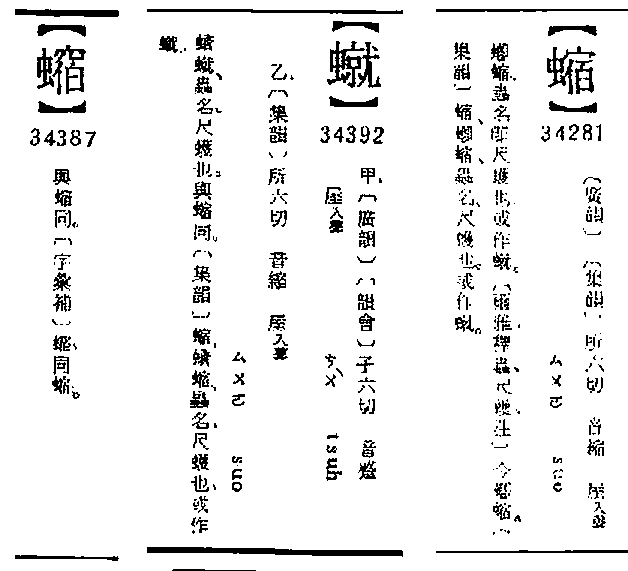 34281
〔廣韻〕〔集韻〕所六切 音縮 屋入聲
ㄙㄨㄛ suo
蟲名,卽尺蠖也,或作。〔爾雅,釋蟲,尺蠖,注〕今蝍。〔
集韻〕蟲名,尺蠖也,或作。
34392
甲、〔廣韻〕〔韻會〕子六切 音蹙
屋入聲 ㄘㄨˋ tsuh
乙、〔集韻〕所六切 音縮 屋入聲
ㄙㄨㄛ suo
蟲名,尺蠖也。與同。〔集韻〕蟲名,尺蠖也,或作
34387
與同。〔字彙補〕同。